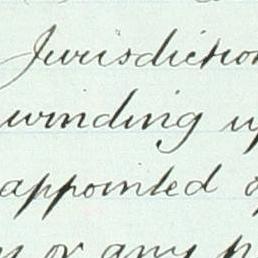 Jurisdiction
winding up
appointed
or any